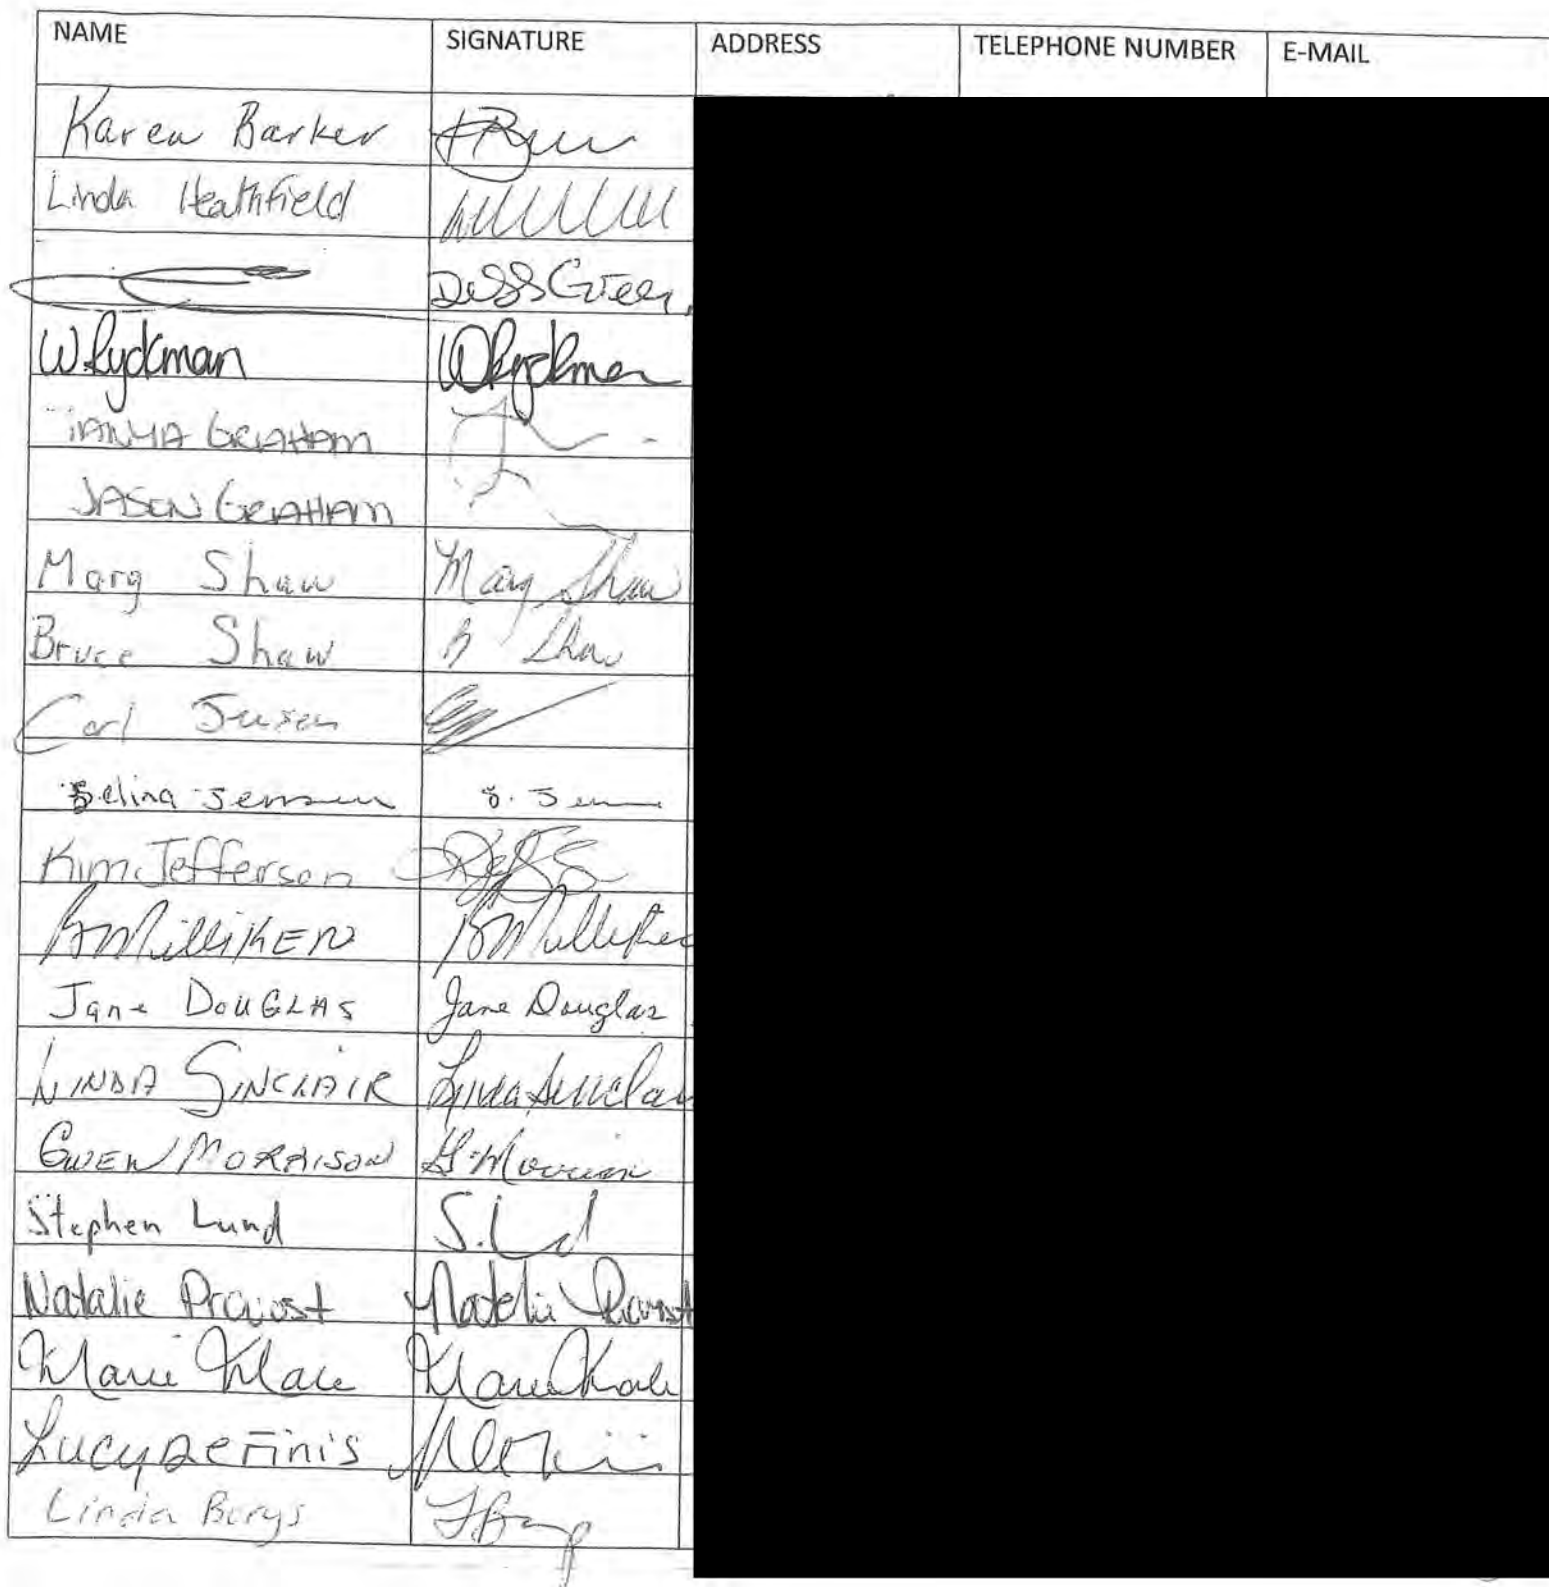 NAME SIGNATURE ADDRESS TELEPHONE NUMBER E-MAIL
Karen Barker
Linda Heathfield
Dess Green
W Ryckman W Ryckman
TANYA GRAHAM
JASON GRAHAM
Marg Shaw Marg Shaw
Bruce Shaw B Shaw
Carl
Selina Jensen S. Jen
Kim Jefferson
Milliken Milliken
Jane DOUGLAS Jane Douglas
LINDA SINCLAIR Linda Sinclair
GWEN MORRISON G. Morrison
Stephen Lund S. L d
Natalie Provost Natalie Provost
Marie Marie
Lucy DeFinis
Linda Borys